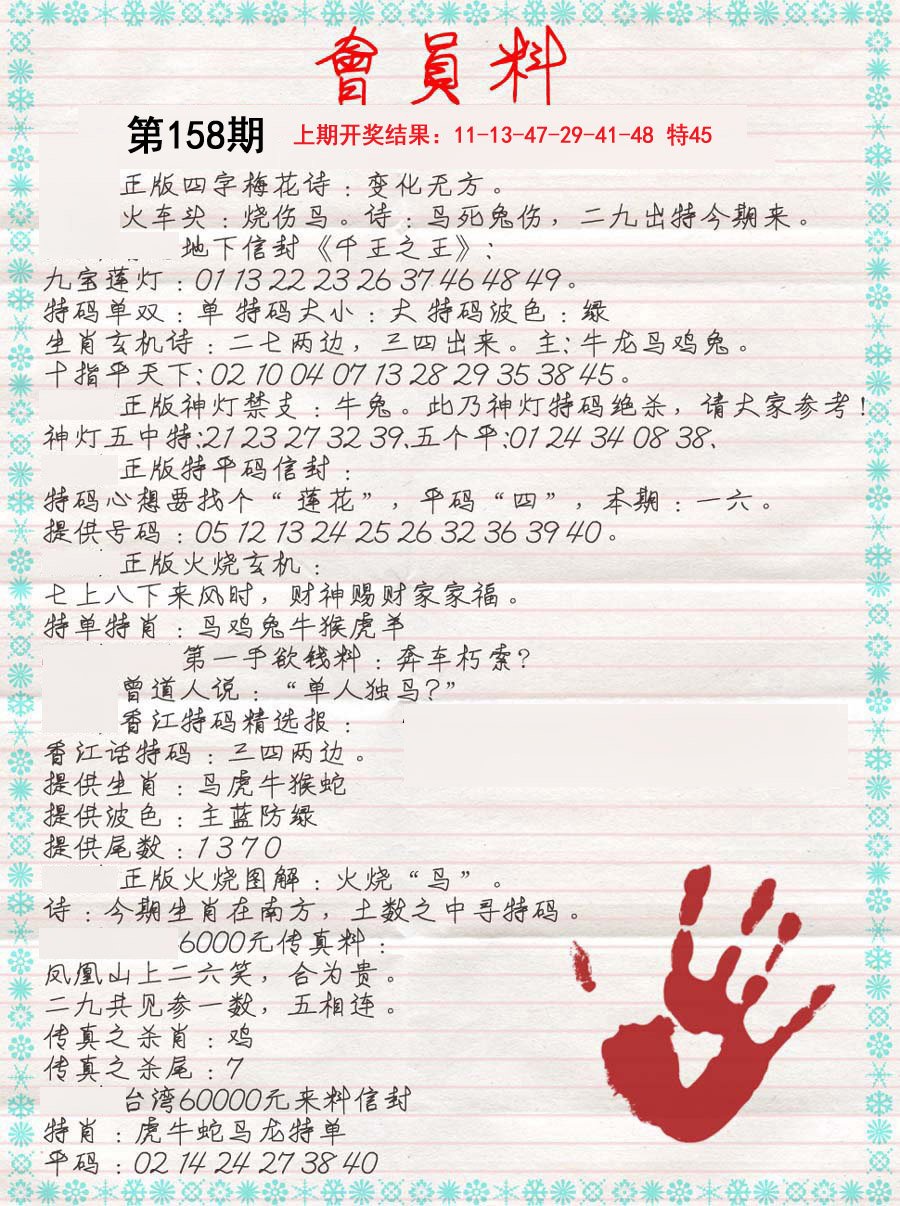 會員料
第158期 上期开奖结果：11-13-47-29-41-48 特45
正版四字梅花诗：变化无方。
火车头：烧伤鸟。诗：鸟死兔伤，二九出特今期来。
地下信封《千王之王》：
九宝莲灯：01 13 22 23 26 37 46 48 49。
特码单双：单 特码大小：大 特码波色：绿
生肖玄机诗：二七两边，三四出来。主：牛龙鸟鸡兔。
十指平天下：02 10 04 07 13 28 29 35 38 45。
正版神灯禁支：牛兔。此乃神灯特码绝杀，请大家参考！
神灯五中特：21 23 27 32 39、五个平：01 24 34 08 38、
正版特平码信封：
特码心想要找个“莲花”，平码“四”，本期：一六。
提供号码：05 12 13 24 25 26 32 36 39 40。
正版火烧玄机：
七上八下来风时，财神赐财家家福。
特单特肖：鸟鸡兔牛猴虎羊
第一手欲钱料：奔车朽索？
曾道人说：“单人独鸟？”
香江特码精选报：
香江话特码：三四两边。
提供生肖：鸟虎牛猴蛇
提供波色：主蓝防绿
提供尾数：1 3 7 0
正版火烧图解：火烧“鸟”。
诗：今期生肖在南方，土数之中寻特码。
6000元传真料：
凤凰山上二六笑，合为贵。
二九共见参一数，五相连。
传真之杀肖：鸡
传真之杀尾：7
台湾60000元来料信封
特肖：虎牛蛇鸟龙特单
平码：02 14 24 27 38 40